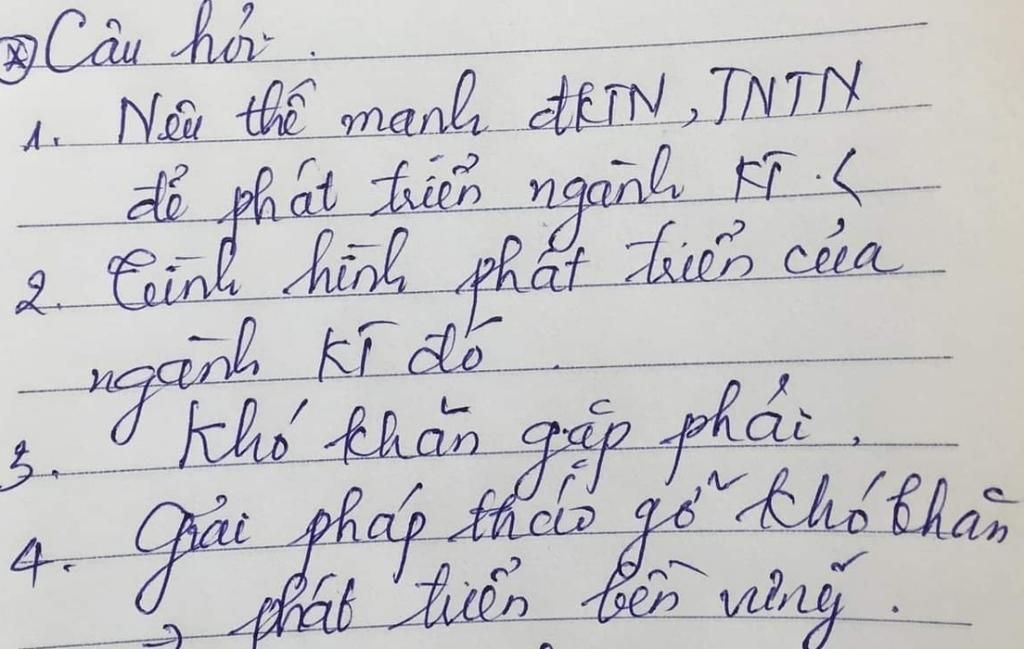 (*) Câu hỏi.
1. Nêu thế mạnh đKTN, TNTN
để phát triển ngành KT. <
2. Tình hình phát triển của
ngành KT đó.
3. Khó khăn gặp phải.
4. Giải pháp tháo gỡ khó khăn
→ phát triển bền vững.